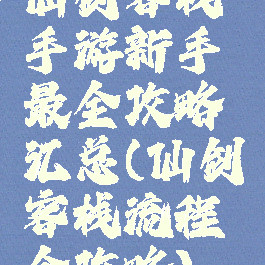 仙创客栈
手游新手
最全攻略
汇总(仙创
客栈流程
全攻略)